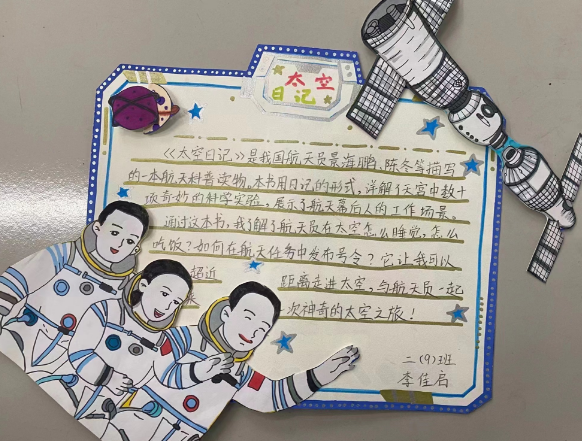 太空
日记
《太空日记》是我国航天员景海鹏、陈冬等描写
的一本航天科普读物。本书用日记的形式，详解了太空中数十
项奇妙的科学实验，展示了航天幕后人的工作场景。
通过这本书，我了解了航天员在太空怎么睡觉，怎么
吃饭？如何在航天任务中发布号令？它让我可以
超近 距离走进太空，与航天员一起
一次神奇的太空之旅！
二（9）班
李佳启